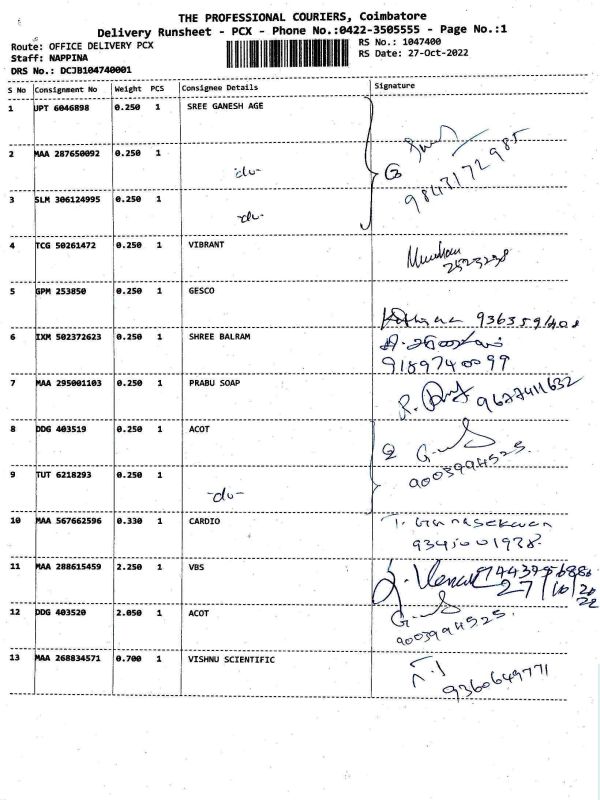 THE PROFESSIONAL COURIERS, Coimbatore
Delivery Runsheet - PCX - Phone No.:0422-3505555 - Page No.:1
Route: OFFICE DELIVERY PCX
Staff: NAPPINA
DRS No.: DCJB104740001
RS No.: 1047400
RS Date: 27-Oct-2022
S No Consignment No Weight PCS Consignee Details Signature
1 JPT 6046898 0.250 1 SREE GANESH AGE
2 MAA 287650092 0.250 1 -do-
3 9843172985
3 SLM 306124995 0.250 1 -do-
4 TCG 50261472 0.250 1 VIBRANT
2523238
5 GPM 253850 0.250 1 GESCO
6 IXM 502372623 0.250 1 SHREE BALRAM
9189740099
7 MAA 295001103 0.250 1 PRABU SOAP
9677411632
8 DDG 403519 0.250 1 ACOT
2
9003994525
9 TUT 6218293 0.250 1 -do-
10 MAA 567662596 0.330 1 CARDIO T. Gunasekaran
11 MAA 288615459 2.250 1 VBS
27/10/2022
12 DDG 403520 2.050 1 ACOT
9003994525
13 MAA 268834571 0.700 1 VISHNU SCIENTIFIC
9360649771